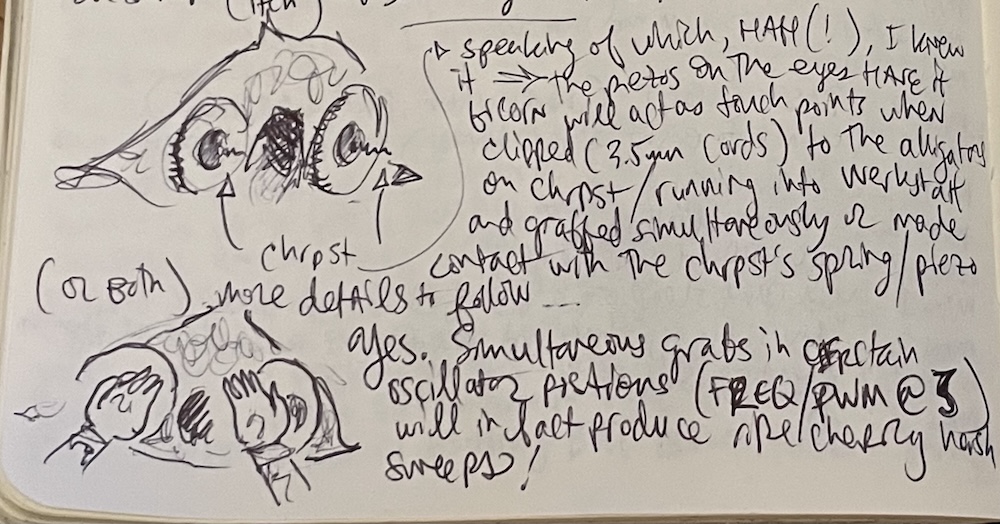 (itch)
speaking of which, HAH(!), I knew
it ⇒ the piezos on the eyes HARE it
bicorn will act as touch points when
clipped (3.5mm cords) to the alligators
on chrpst/running into werkstatt
and grabbed simultaneously or made
contact with the chrpst's spring/piezo
chrpst
(or Both) more details to follow ....
yes. Simultaneous grabs in certain
oscillator positions (FREQ/PWM @ 3)
will in fact produce ripe/cheery harsh
sweeps!